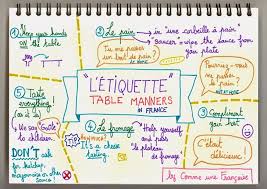 "L'ÉTIQUETTE"
TABLE MANNERS
IN FRANCE
① Keep your hands
ON the table
② Le pain → in une corbeille à pain
"Saucer" = wipe the sauce from
your plate
Tu me passes
un bout de pain?
AT HOME
Pourriez-vous
me passer
le pain?
NOT AT HOME
③ Compliment
your host
C'était
délicieux
④ Le fromage
It's a cheese
tasting
Help yourself
and pass
le plateau de
fromage
⑤ Taste
everything
(as it is)
We say Goûte
to children
DON'T ask
for ketchup,
mayonnaise or other
sauces
by Comme une Française